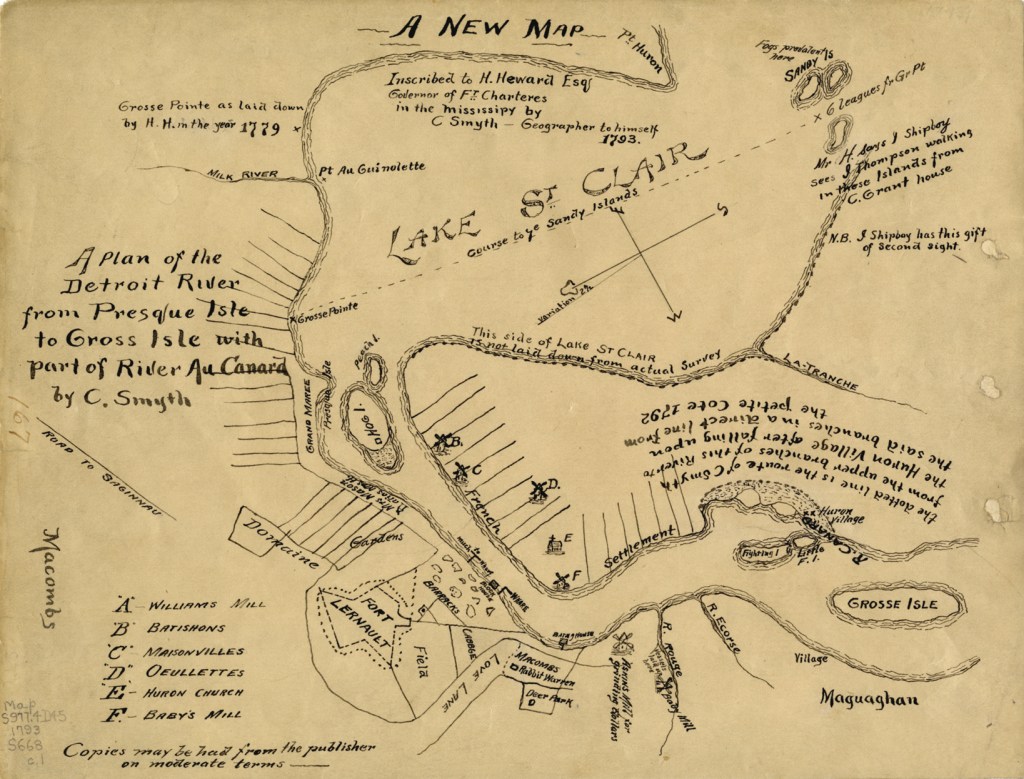 A NEW MAP
Pt Huron
Inscribed to H. Heward Esqr
Governor of Ft. Charteres
in the Mississipy by
C Smyth – Geographer to himself
1793.
Fogs prevalent
here
SANDY IS
6 leagues fr Gr Pt
Grosse Pointe as laid down
by H. H. in the year 1779
MILK RIVER
Pt Au Guinolette
LAKE ST CLAIR
Course to ye Sandy Islands
Mr H. says J Shipboy
sees J Thompson walking
in those Islands from
C. Grant house
N.B. J Shipboy has this gift
of second sight.
S
W
variation
A Plan of the
Detroit River
from Presque Isle
to Gross Isle with
part of River Au Canard
by C. Smyth
Grosse Pointe
This side of Lake ST CLAIR
is not laid down from actual Survey
LA-TRANCHE
GRAND MAREE
Presque Isle
Peach I.
HOG I.
167
ROAD TO SAGINNAU
the dotted line is the route of C Smyth
from the upper branches of this River to
the Huron Village after falling upon
the said branches in a direct line from
the petite Cote 1792
B.
C
D.
E
F
French
Settlement
Huron
Village
R. CANARD
Fighting I
Little
F. I.
GROSSE ISLE
Domaine
Gardens
Macombs
FORT
LERNAULT
BARRACKS
WHARF
Field
CABBGE
LOVE LANE
MACOMBS
Rabbit Warren
Deer Park
D
R. ROUGE
R. Ecorse
Village
Maguaghan
"A" – WILLIAMS MILL
"B" BATISHONS
"C" MAISONVILLES
"D" OEULLETTES
"E" – HURON CHURCH
F. – BABY'S MILL
Map
S977.4D45
1793
S668
c.1
Copies may be had from the publisher
on moderate terms